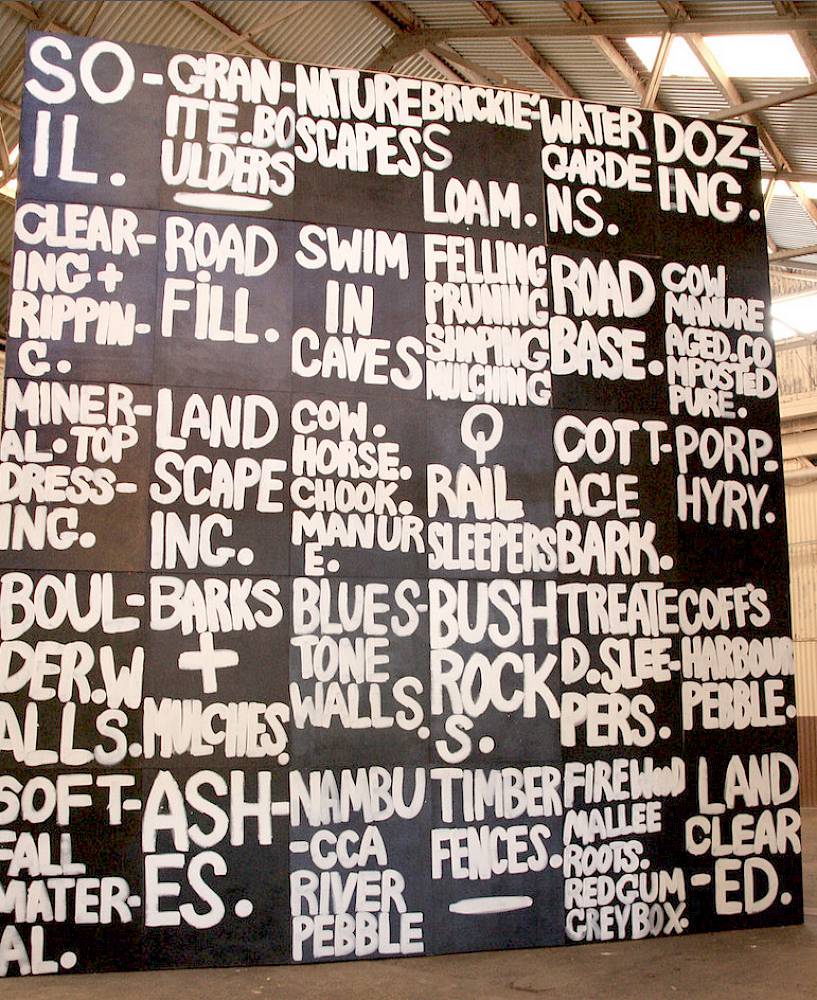 SO-
IL.
GRAN-
ITE.BO
ULDERS
NATURE
SCAPES
BRICKIE-
S
LOAM.
WATER
GARDE
NS.
DOZ-
ING.
CLEAR-
ING +
RIPPIN-
G.
ROAD
FiLL.
SWIM
IN
CAVES
FELLING
PRUNING
SHAPING
MULCHING
ROAD
BASE.
COW
MANURE
AGED.CO
MPOSTED
PURE.
MINER-
AL.TOP
DRESS-
ING.
LAND
SCAPE
ING.
COW.
HORSE.
CHOOK.
MANUR
E.
Q
RAIL
SLEEPERS
COTT-
AGE
BARK.
PORP-
HYRY.
BOUL-
DER.W
ALLS.
BARKS
+
MULCHES.
BLUES-
TONE
WALLS.
BUSH
ROCK
S.
TREATE
D.SLEE-
PERS.
COFF'S
HARBOUR
PEBBLE.
SOFT-
FALL
MATER-
AL.
ASH-
ES.
NAMBU
-CCA
RIVER
PEBBLE
TIMBER
FENCES.
FIREWOOD
MALLEE
ROOTS.
REDGUM
GREYBOX.
LAND
CLEAR
-ED.